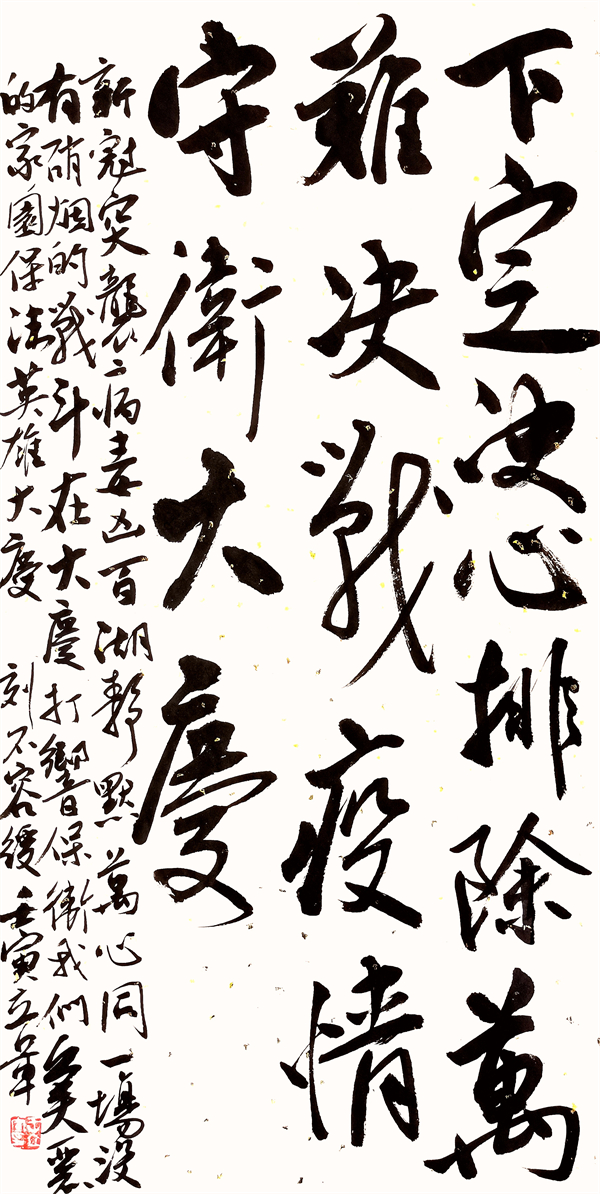 下定決心排除萬
難决戰疫情
守衛大慶
新冠突襲病毒凶百湖靜默萬心同一場没
有硝烟的戰斗在大慶打響保衛我們美麗
的家園保法英雄大慶 刻不容緩 壬寅立軍